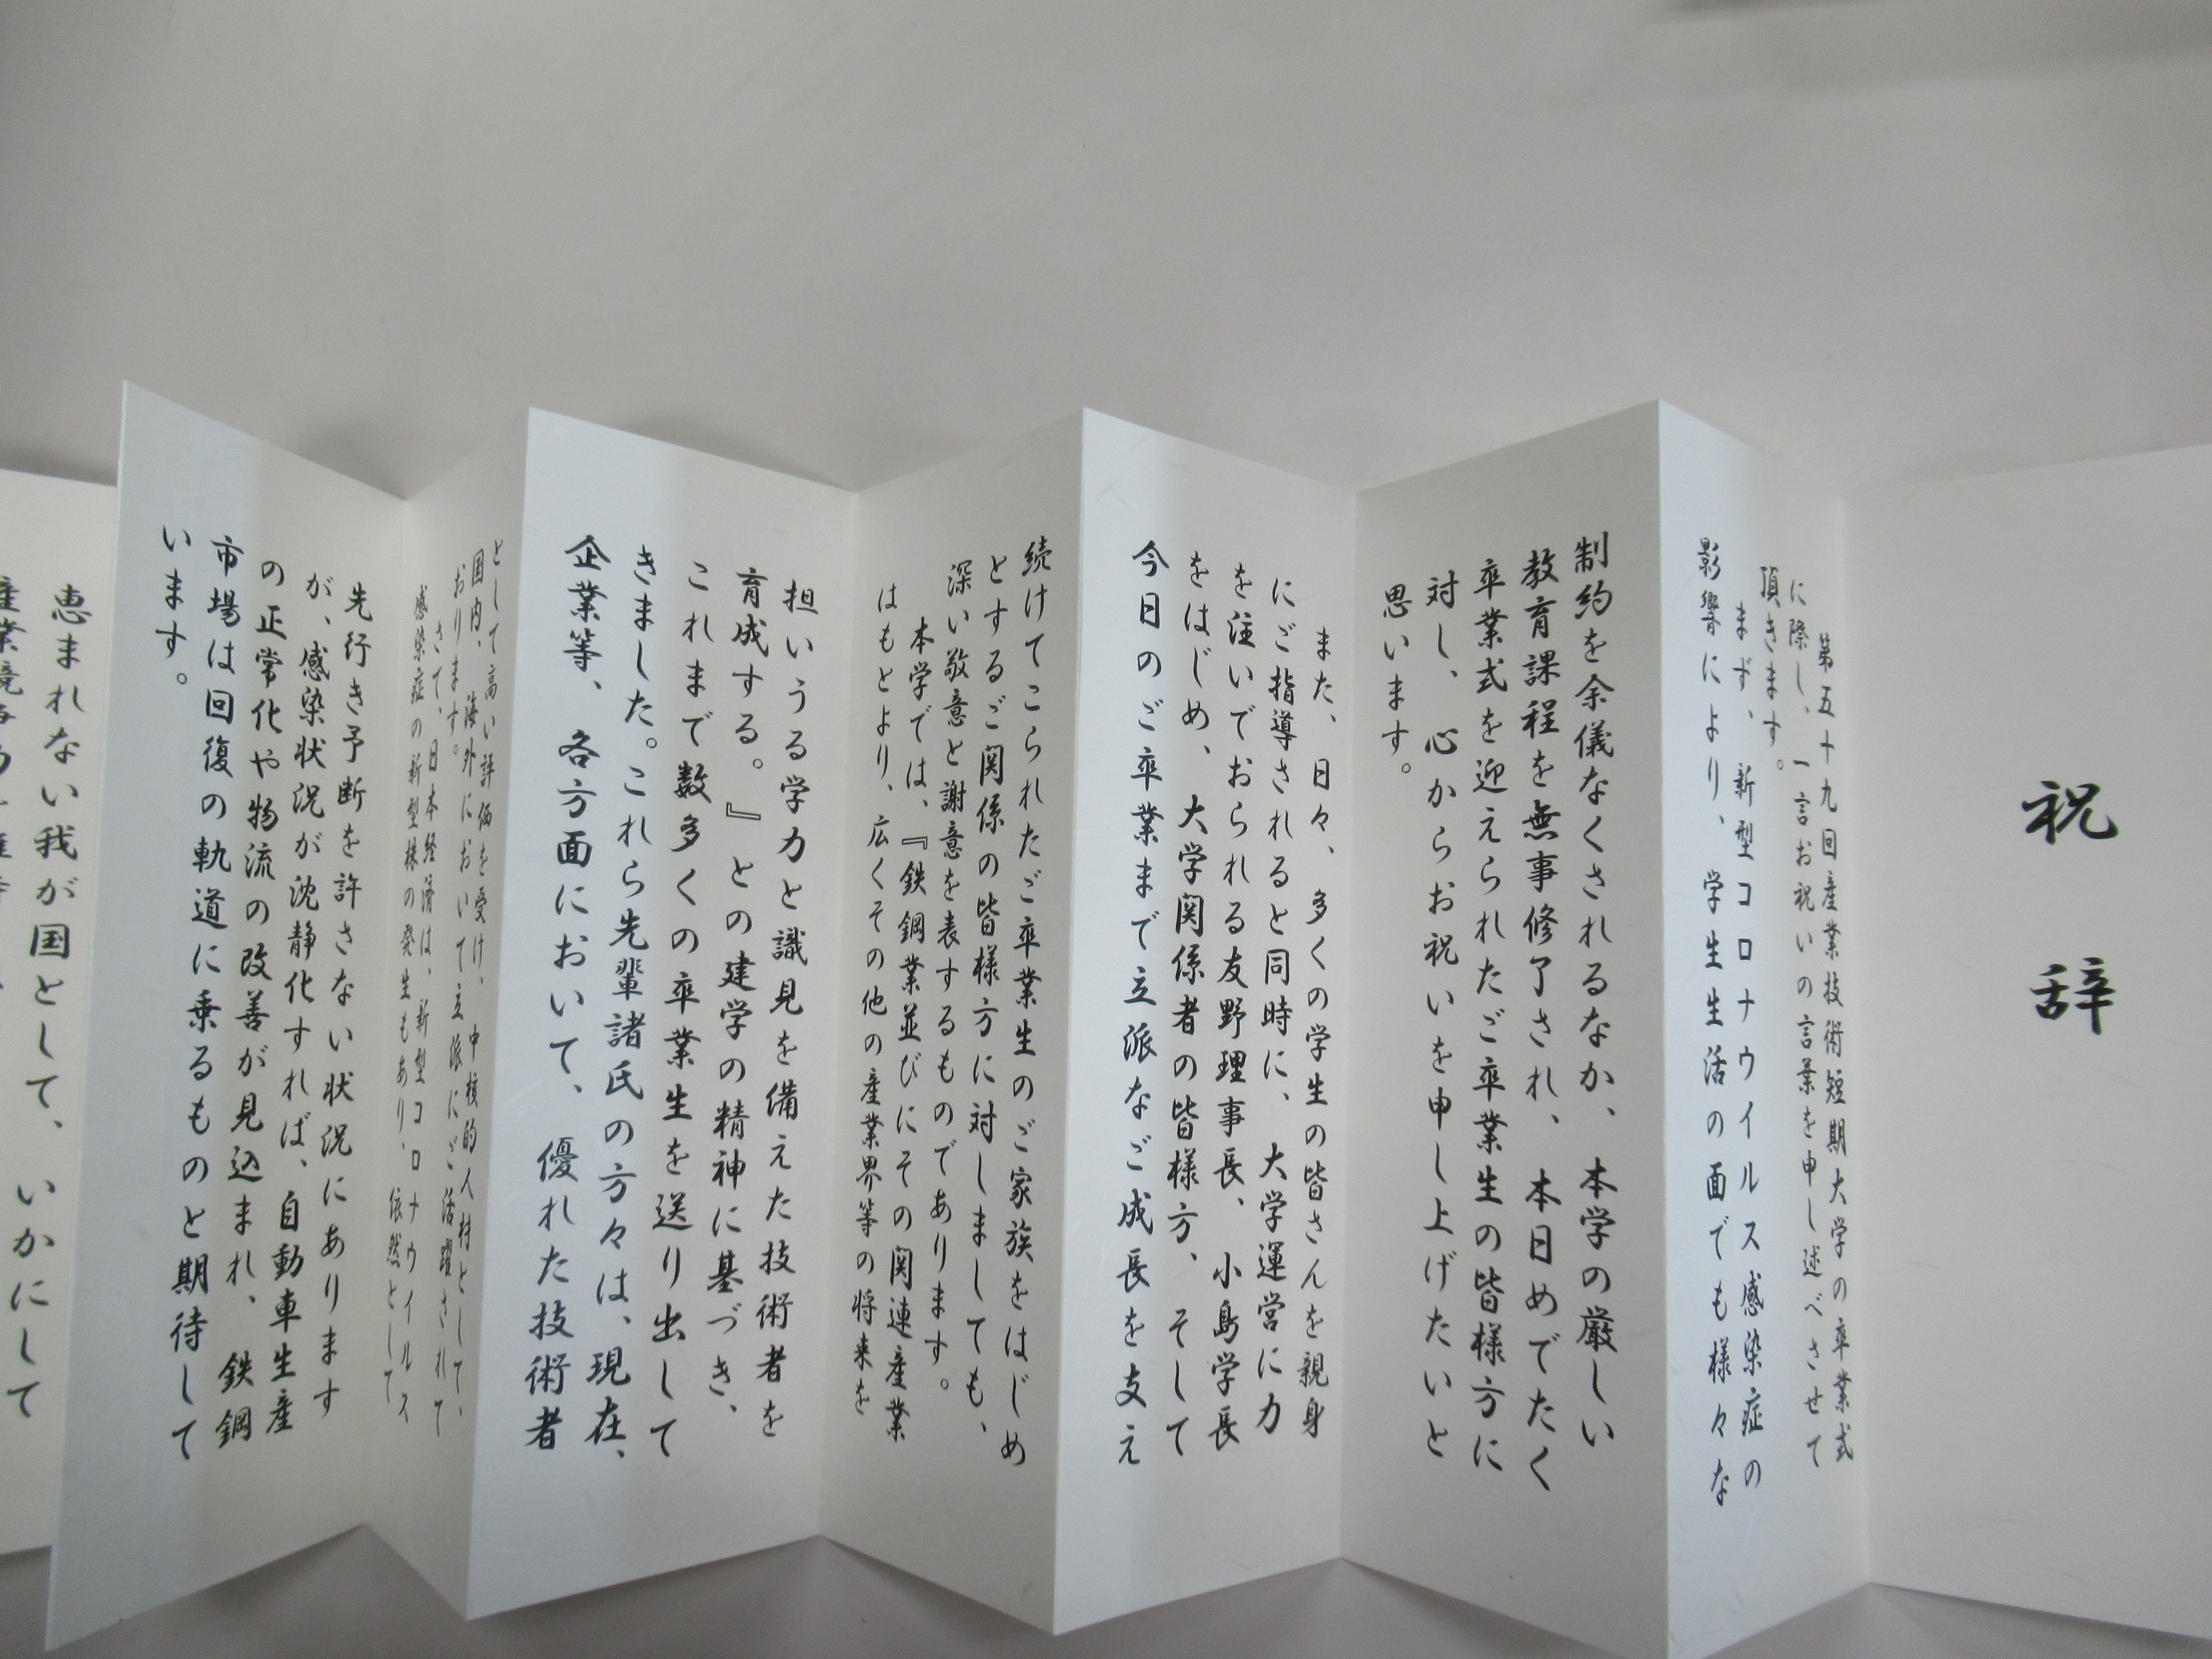 祝辞
第五十九回産業技術短期大学の卒業式
に際し、一言お祝いの言葉を申し述べさせて
頂きます。
まず、新型コロナウイルス感染症の
影響により、学生生活の面でも様々な
制約を余儀なくされるなか、本学の厳しい
教育課程を無事修了され、本日めでたく
卒業式を迎えられたご卒業生の皆様方に
対し、心からお祝いを申し上げたいと
思います。
また、日々、多くの学生の皆さんを親身
にご指導されると同時に、大学運営に力
を注いでおられる友野理事長、小島学長
をはじめ、大学関係者の皆様方、そして
今日のご卒業まで立派なご成長を支え
続けてこられたご卒業生のご家族をはじめ
とするご関係の皆様方に対しましても、
深い敬意と謝意を表するものであります。
本学では、『鉄鋼業並びにその関連産業
はもとより、広くその他の産業界等の将来を
担いうる学力と識見を備えた技術者を
育成する。』との建学の精神に基づき、
これまで数多くの卒業生を送り出して
きました。これら先輩諸氏の方々は、現在、
企業等、各方面において、優れた技術者
として高い評価を受け、中核的人材として、
国内、海外において立派にご活躍されて
おります。
さて、日本経済は、新型コロナウイルス
感染症の新型株の発生もあり、依然として
先行き予断を許さない状況にあります
が、感染状況が沈静化すれば、自動車生産
の正常化や物流の改善が見込まれ、鉄鋼
市場は回復の軌道に乗るものと期待して
います。
恵まれない我が国として、いかにして